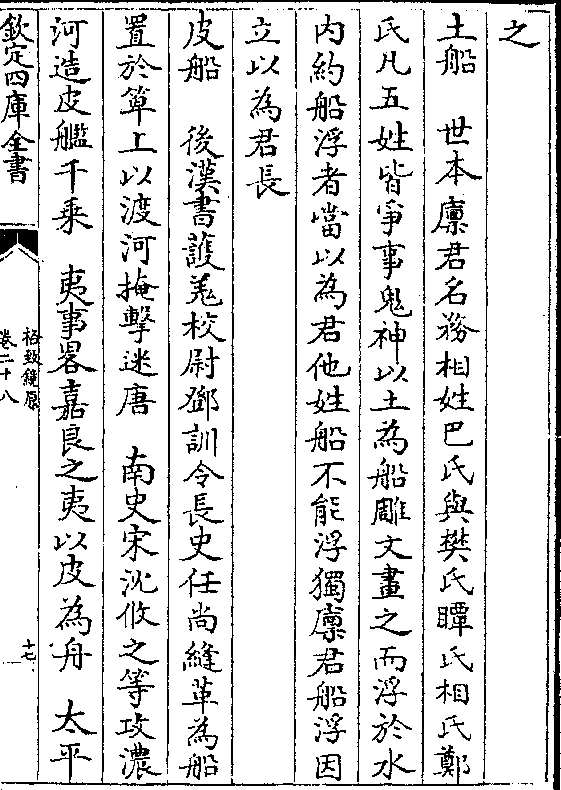 之
土船　世本廩君名務相姓巴氏與樊氏瞫氏相氏鄭
氏凡五姓皆爭事鬼神以土為船雕文畫之而浮於水
内約船浮者當以為君他姓船不能浮獨廩君船浮因
立以為君長
皮船　後漢書護羌校尉鄧訓令長史任尚縫革為船
置於箄上以渡河掩擊迷唐　南史宋沈攸之等攻濃
河造皮艦千乘　夷事畧嘉良之夷以皮為舟　太平
欽定四庫全書
格致鏡原
卷二十八
十七